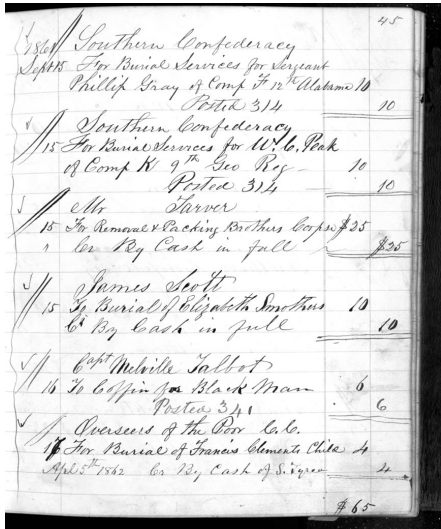 45
1861 Southern Confederacy
Sept 15 For Burial Services for Sergeant
Phillip Gray of Comp F 12th Alabama 10
Posted 314 10
Southern Confederacy
15 For Burial Services for W. C. Peak
of Comp K 9th Geo Reg 10
Posted 314 10
Mr Tarver
15 For Removal & Packing Brothers Corpse $25
" Cr By Cash in full $25
James Scott
15 To Burial of Elizabeth Smothers 10
Cr By Cash in full 10
Capt Melville Talbot
16 To Coffin for Black Man 6
Posted 341 6
Overseers of the Poor C.C.
16 For Burial of Francis Clements Child 4
Apl 5th 1862 Cr By Cash of S. Tyree 4
$65